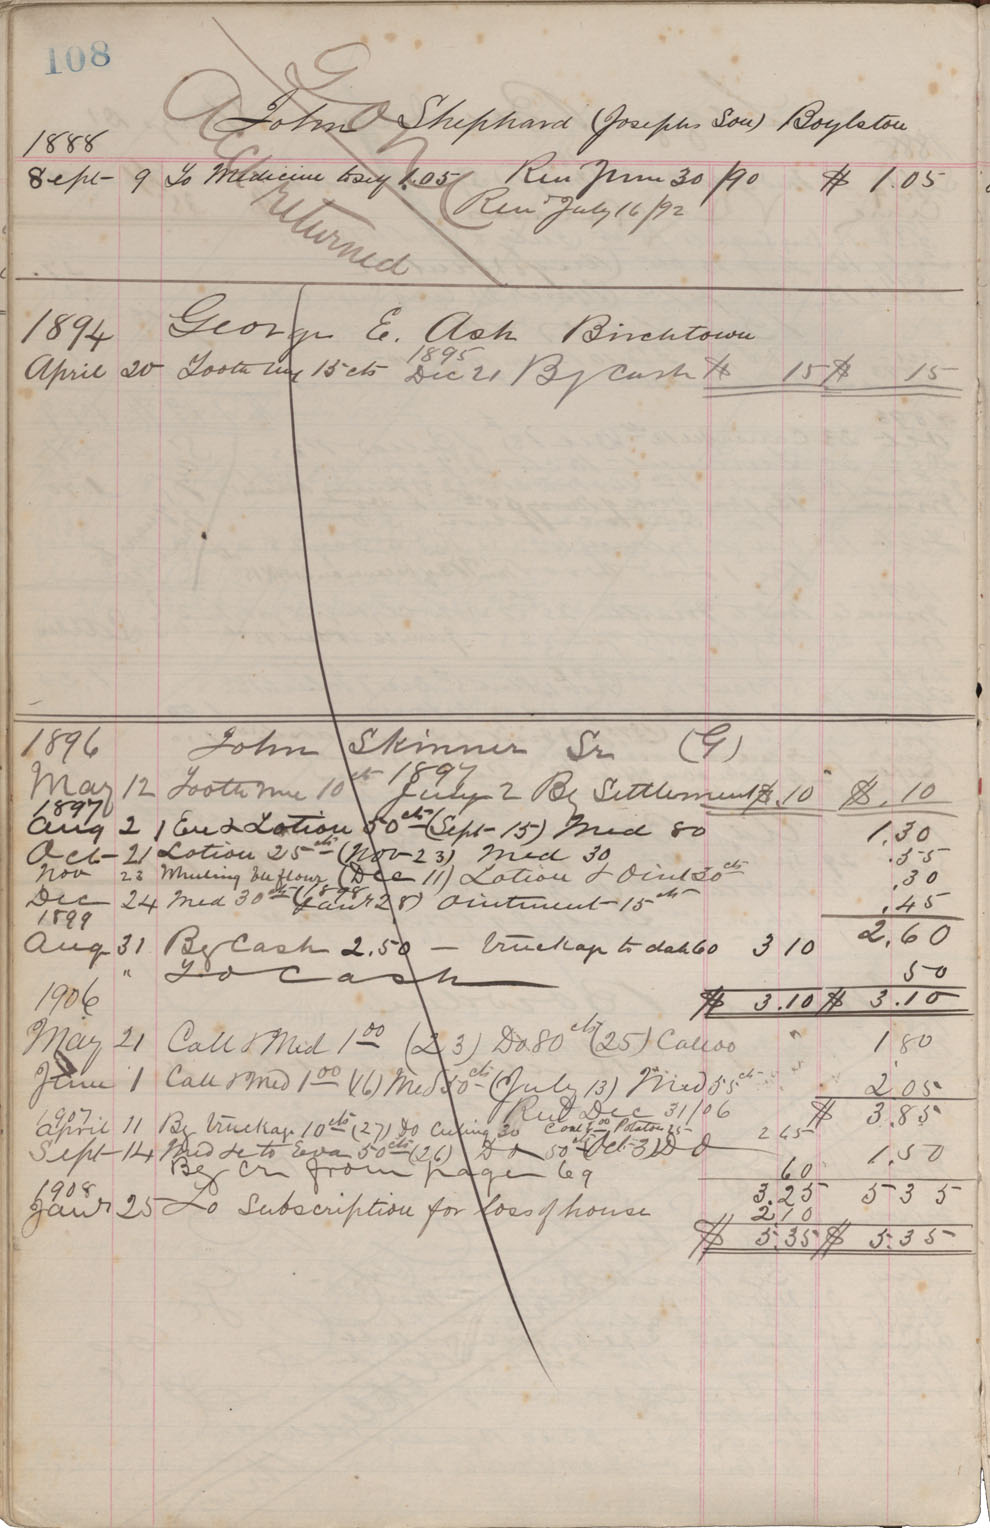 108
Gone
John Shephard (Josephs Son) Boylston
1888
Sept 9 To Medicine to self 1.05 Ren June 30/90 $ 1.05
Ren July 16/92
Acct returned
1894 George E. Ash Birchtown
1895
April 20 Tooth ting 15 cts Dec 21 By Cash $ 15 $ 15
1896 John Skinner Sr (G)
1897
May 12 Tooth 10 cts July 2 By Settlement $.10 $.10
1897
Aug 21 & Lotion 50 cts (Sept 15) Med 80 1.30
Oct 21 Lotion 25 cts (Nov 23) Med 30 .55
Nov 23 flour (Dec 11) Lotion & Oint 30 cts .30
Dec 24 Med 30 cts (1898 Janr 28) Ointment 15 cts .45
1899 2.60
Aug 31 By Cash 2.50 — Truckage to date 60 3 10
" To Cash 50
$ 3.10 $ 3.10
1906
May 21 Call & Med 1 00 (23) Do 80 cts (25) Call 00 " 1 80
June 1 Call & Med 1 00 (16) Med 50 cts (July 13) Med 55 cts 2 05
Rend Dec 31/06 $ 3.85
1907
April 11 By Truckage 10 cts (27) Do 30 Potatoes 25 2 65
Sept 14 Med &c to Eva 50 cts (26) Do 50 cts (Oct 3) Do 1.50
By Cr from page 69 60
3.25 5 3 5
1908
Janr 25 To Subscription for loss of house 2.10
$ 5.35 $ 5.35